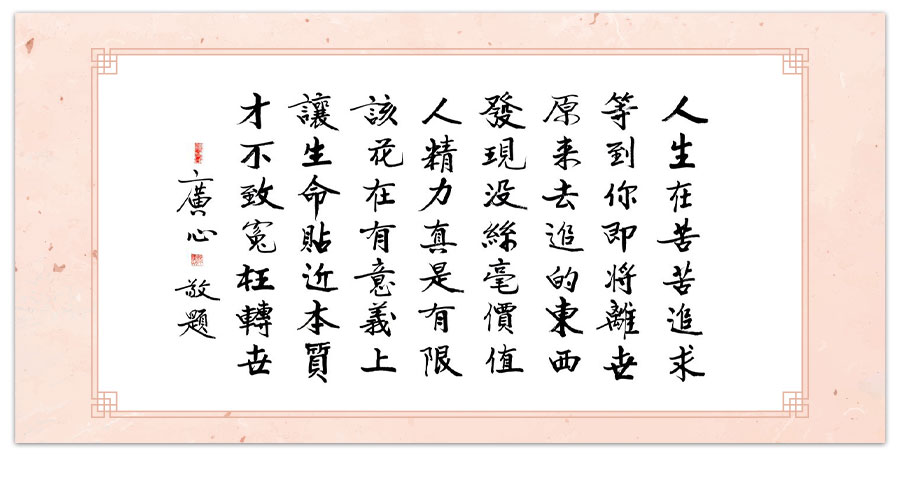 人生在苦苦追求
等到你即将離世
原来去追的東西
發現没絲毫價值
人精力真是有限
該花在有意義上
讓生命貼近本質
才不致冤枉轉世
廣心敬題